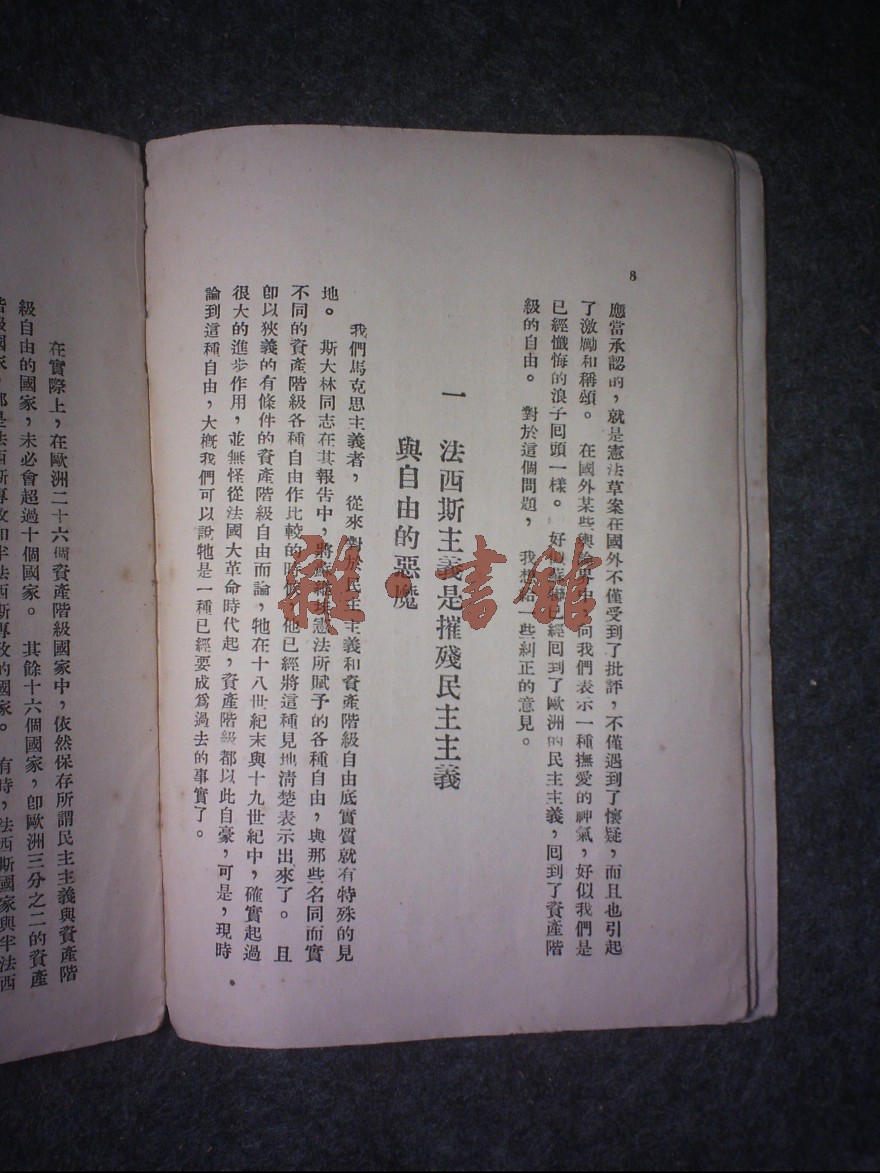 8
應當承認的，就是憲法草案在國外不僅受到了批評，不僅遇到了懷疑，而且也引起
了激勵和稱頌。 在國外某些輿論界中，向我們表示一種撫愛的神氣，好似我們是
已經懺悔的浪子回頭一樣。 好似蘇聯已經回到了歐洲的民主主義，回到了資產階
級的自由。 對於這個問題， 我想給一些糾正的意見。
一 法西斯主義是摧殘民主主義
與自由的惡魔
我們馬克思主義者，從來對於民主主義和資產階級自由底實質就有特殊的見
地。 斯大林同志在其報告中，將蘇維埃憲法所賦予的各種自由，與那些名同而實
不同的資產階級各種自由作比較的時候，他已經將這種見地清楚表示出來了。 且
卽以狹義的有條件的資產階級自由而論，牠在十八世紀末與十九世紀中，確實起過
很大的進步作用，並無怪從法國大革命時代起，資產階級都以此自豪，可是，現時
論到這種自由，大概我們可以說牠是一種已經要成爲過去的事實了。
在實際上，在歐洲二十六個資產階級國家中，依然保存所謂民主主義與資產階
級自由的國家，未必會超過十個國家。 其餘十六個國家，卽歐洲三分之二的資產
階級國家，都是法西斯專政和半法西斯專政的國家。 有時，法西斯國家與半法西
雜·書館